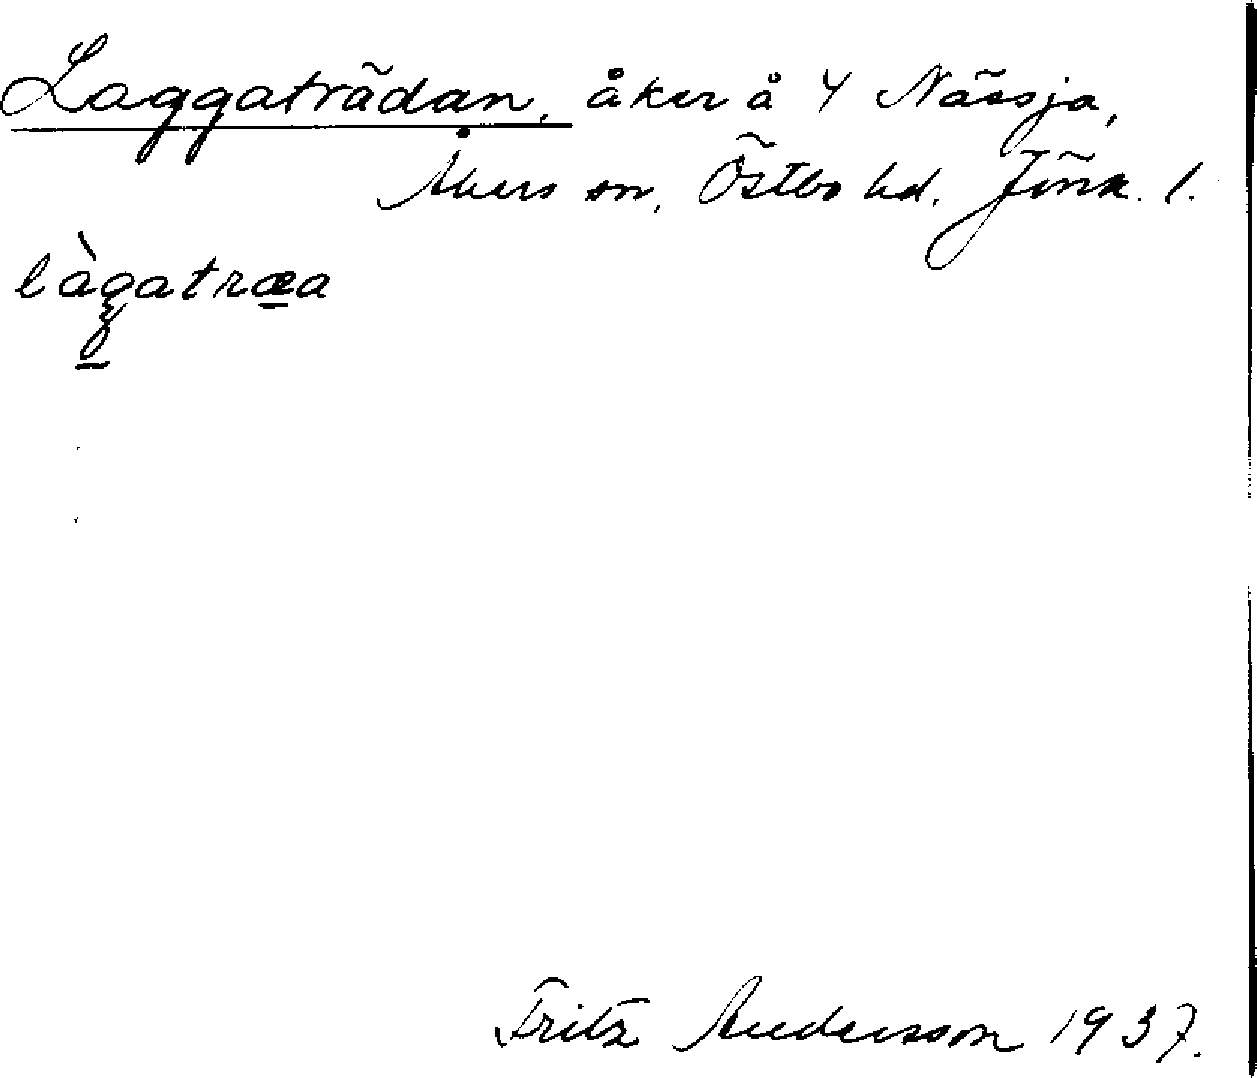 Laggaträdan, åker å 4 Nässja,
Åkers sn, Östbo hd. Jönk. l.
làgatræa
Fritz Andersson 1937.